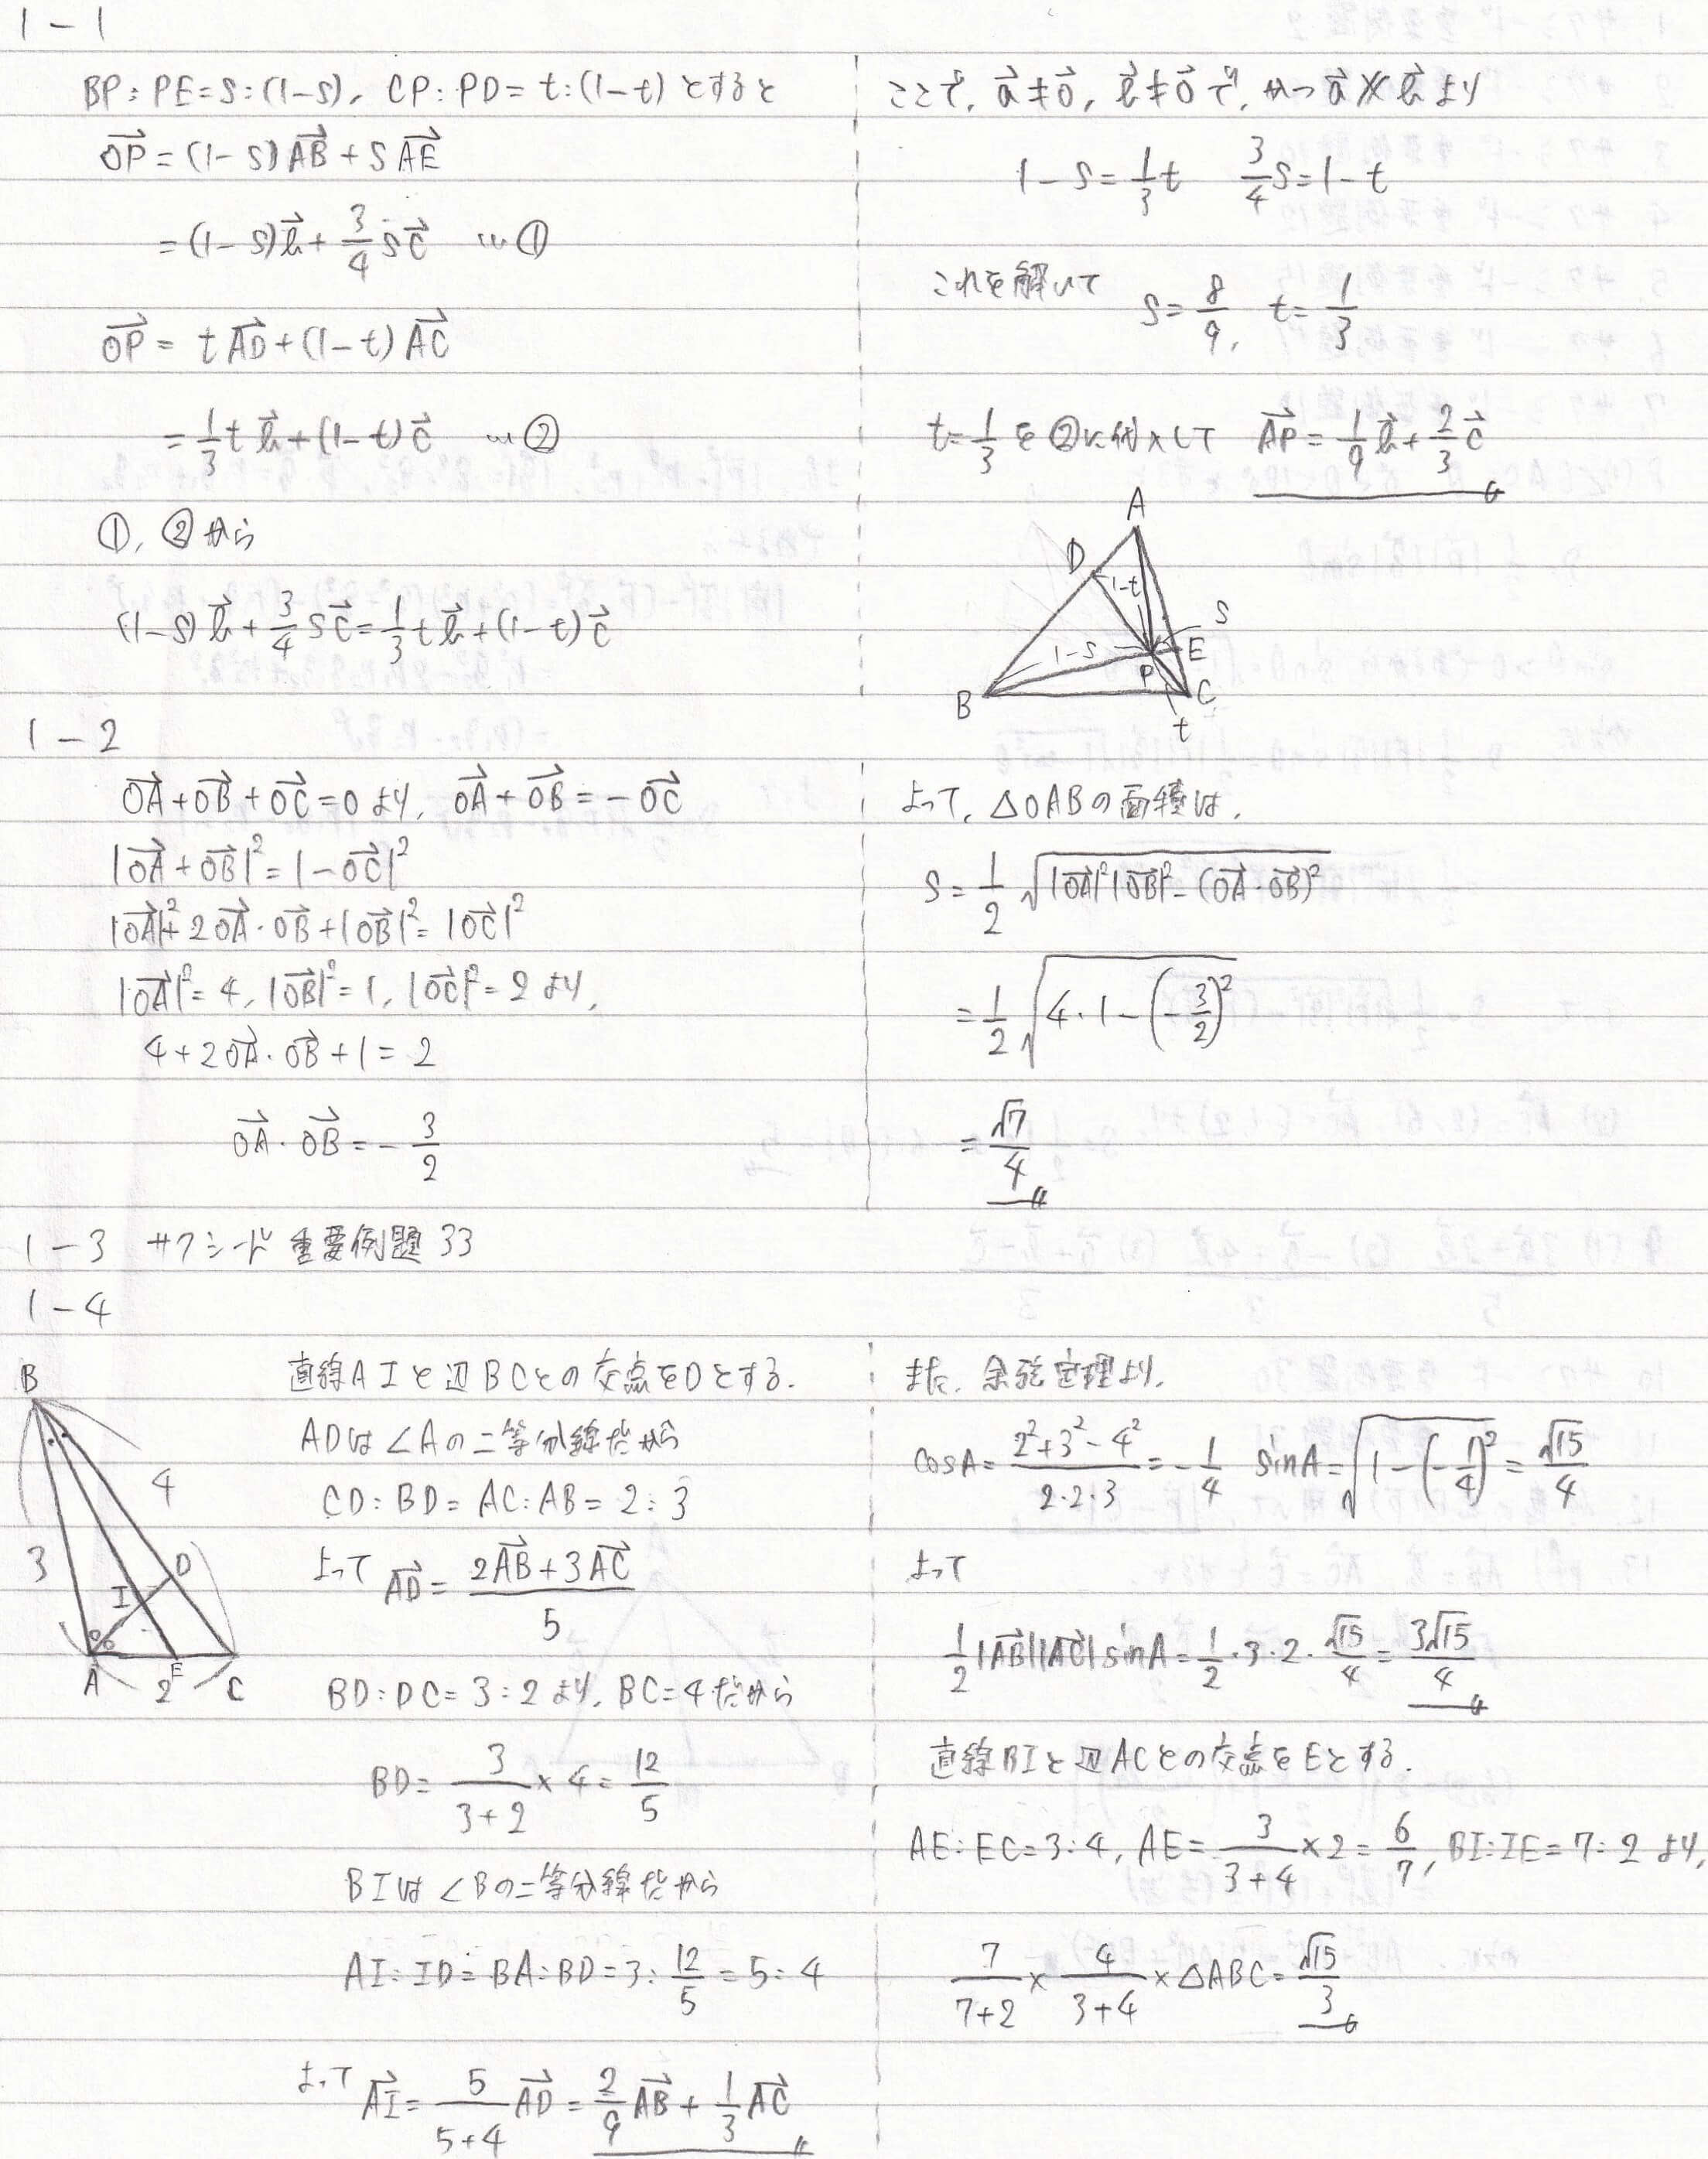 1-1
BP:PE=s:(1-s), CP:PD=t:(1-t)とすると
OP→=(1-s)AB→+sAE→
=(1-s)b→+3/4 sc→ …①
OP→=tAD→+(1-t)AC→
=1/3 t b→+(1-t)c→ …②
①,②から
(1-s)b→+3/4 sc→=1/3 t b→+(1-t)c→
ここで, a→≠0→, b→≠0→で, かつa→∦b→より
1-s=1/3 t 3/4 s=1-t
これを解いて s=8/9, t=1/3
t=1/3を②に代入して AP→=1/9 b→+2/3 c→
A
D
1-t
s
1-s
E
P
B
C
t
1-2
OA→+OB→+OC→=0より, OA→+OB→=-OC→
|OA→+OB→|²=|-OC→|²
|OA→|²+2OA→・OB→+|OB→|²=|OC→|²
|OA→|²=4, |OB→|²=1, |OC→|²=2より,
4+2OA→・OB→+1=2
OA→・OB→=-3/2
よって, △OABの面積は,
S=1/2 √(|OA→|²|OB→|²-(OA→・OB→)²)
=1/2 √(4・1-(-3/2)²)
=√7/4
1-3 サクシード 重要例題33
1-4
B
4
3
D
I
A
E
2
C
直線AIと辺BCとの交点をDとする.
ADは∠Aの二等分線だから
CD:BD=AC:AB=2:3
よって AD→=(2AB→+3AC→)/5
BD:DC=3:2より, BC=4だから
BD=3/(3+2)×4=12/5
BIは∠Bの二等分線だから
AI:ID=BA:BD=3:12/5=5:4
よって AI→=5/(5+4) AD→=2/9 AB→+1/3 AC→
また, 余弦定理より,
cosA=(2²+3²-4²)/(2・2・3)=-1/4 sinA=√(1-(-1/4)²)=√15/4
よって
1/2|AB→||AC→|sinA=1/2・3・2・√15/4=3√15/4
直線BIと辺ACとの交点をEとする.
AE:EC=3:4, AE=3/(3+4)×2=6/7, BI:IE=7:2より,
7/(7+2)×4/(3+4)×△ABC=√15/3